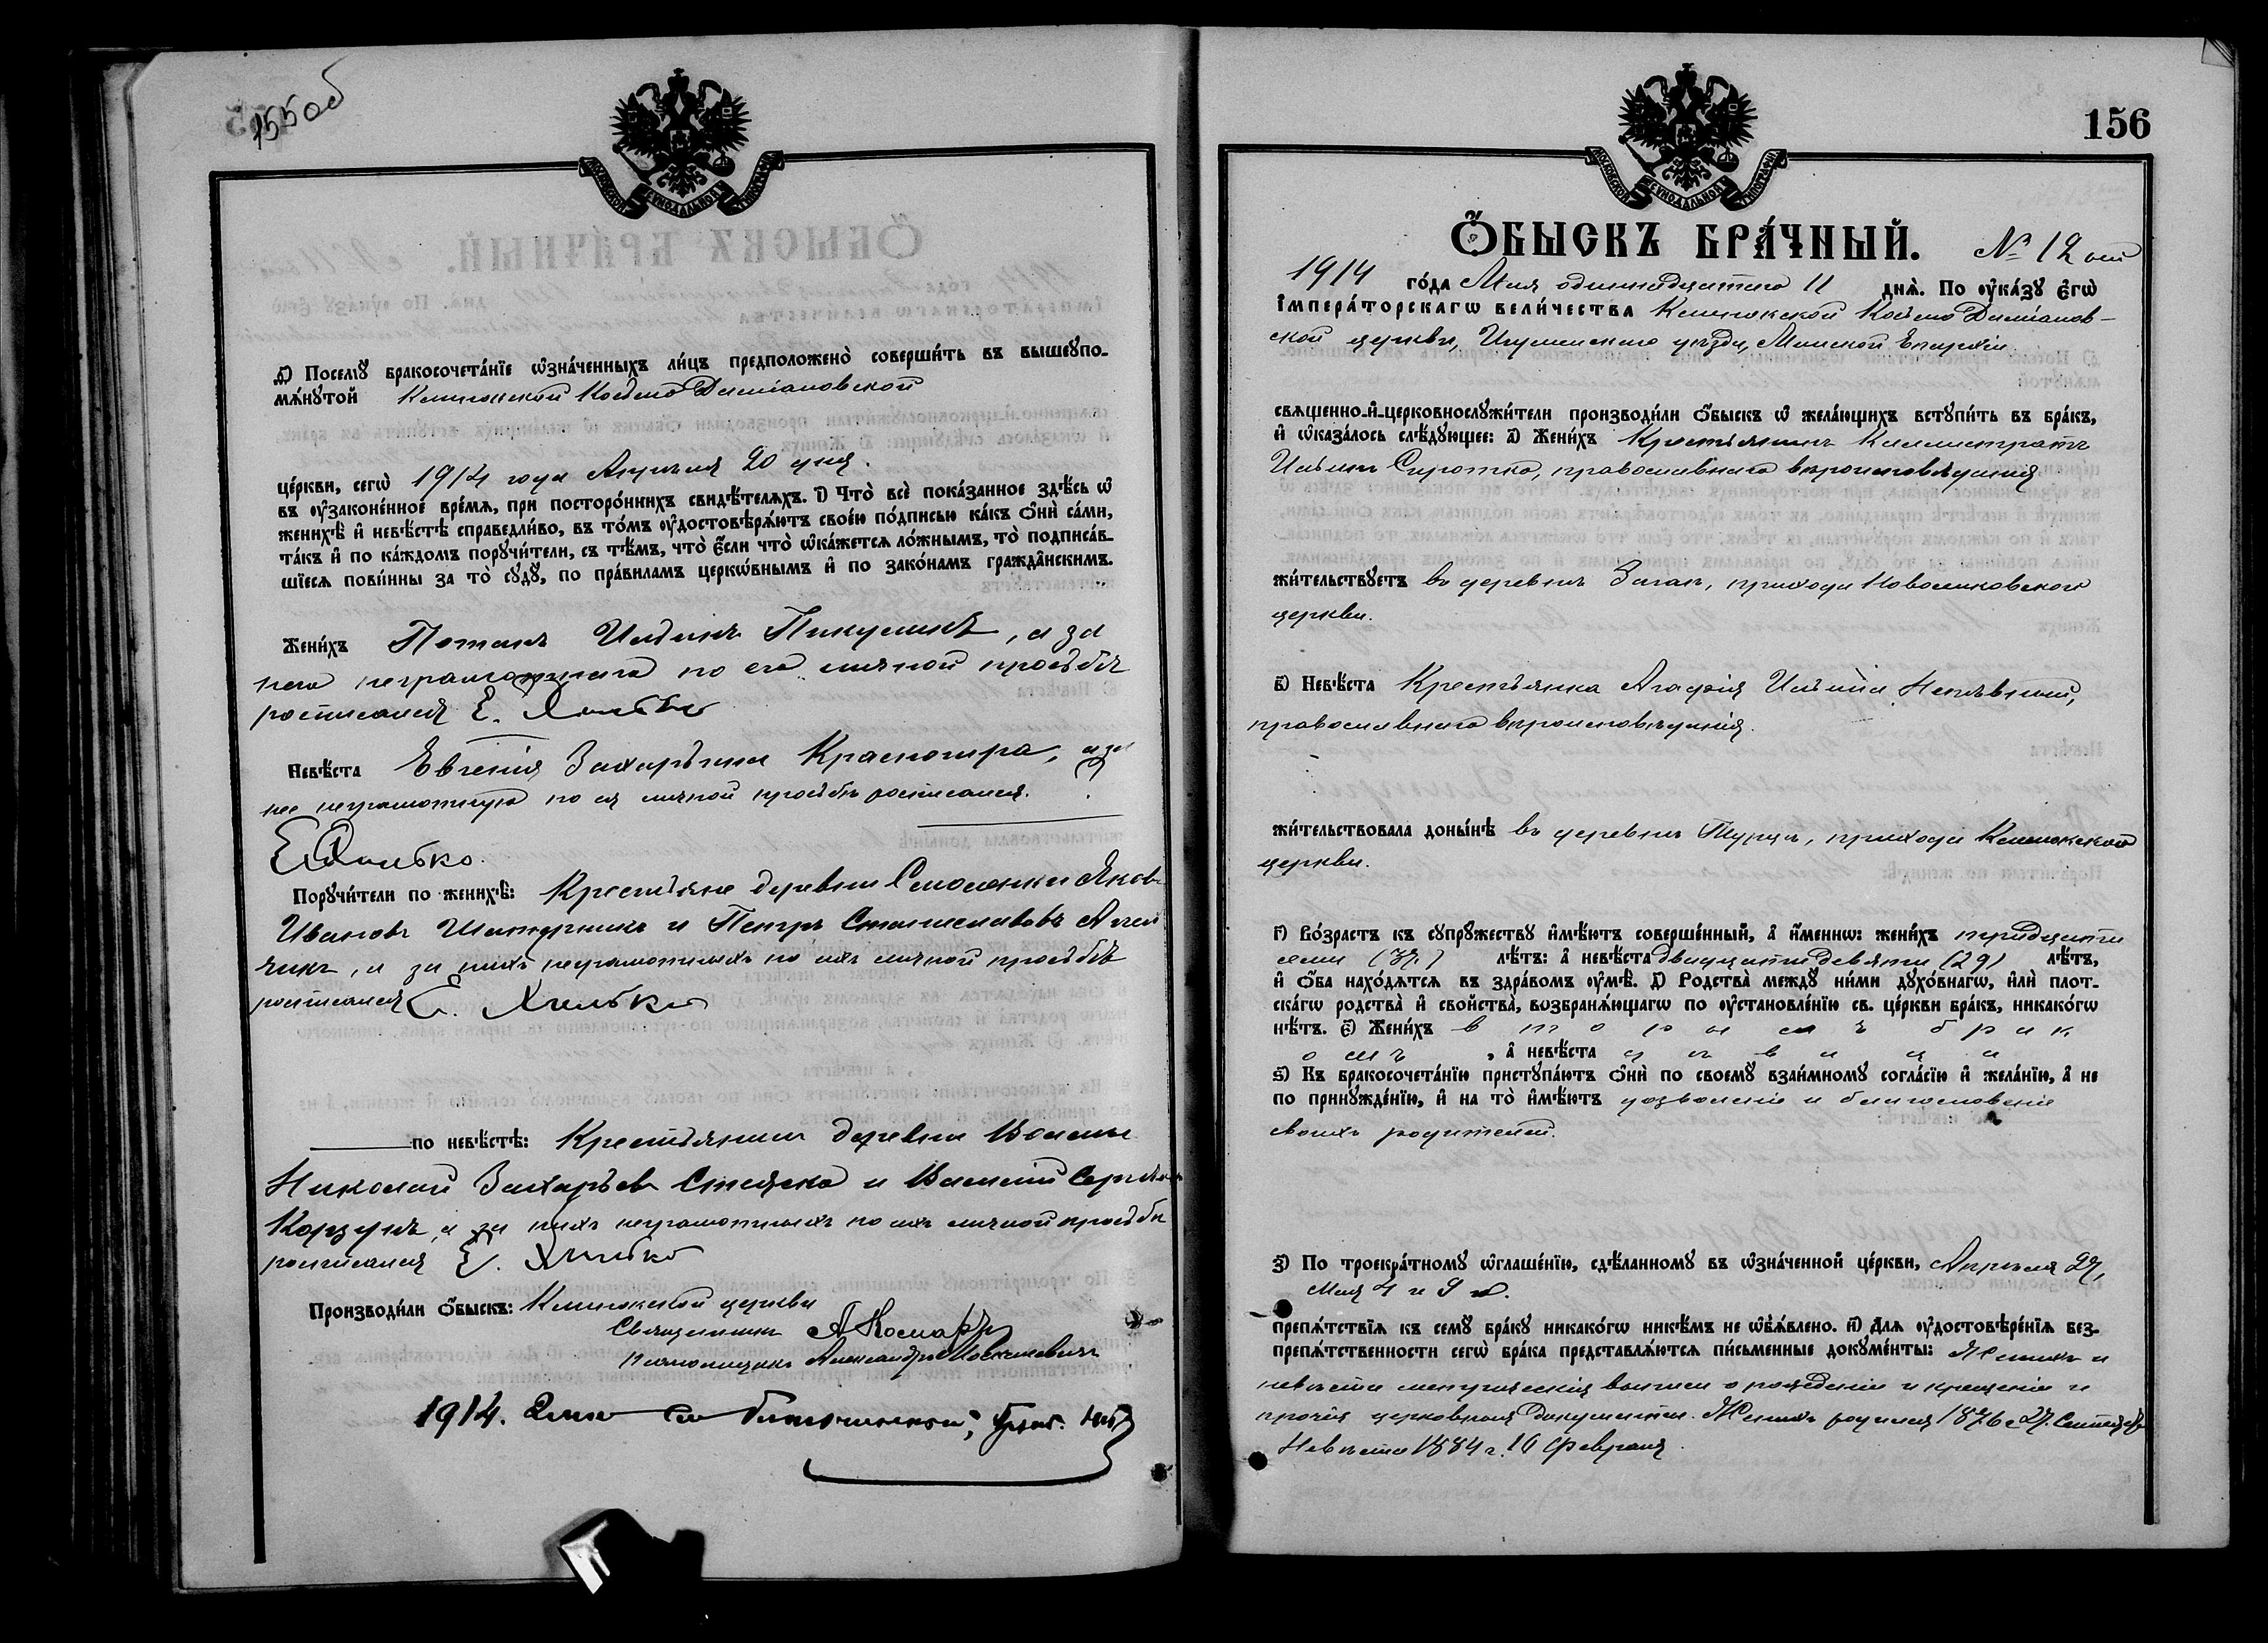 155 об
МОСКОВСКОЙ СѴНОДАЛЬНОЙ ТИПОГРАФІИ
д҃) Посемꙋ бракосочета́нїе ѡ҆зна́ченныхъ ли́цъ предположено̀ соверши́ть въ вышеꙋпо-
мѧ́нꙋтой Клинокской Косьмо Даміановской
це́ркви, сегѡ̀ 1914 года Апрѣля 20 дня.
въ ᲂу҆законе́нное вре́мѧ, при посторо́ннихъ свидѣ́телѧхъ. ї҃) Что̀ всѐ пока́занное здѣ́сь ѡ҆
женихѣ̀ и҆ невѣ́стѣ справедли́во, въ то́мъ ᲂу҆достовѣрѧ́ютъ свое́ю по́дписью ка́къ ѻ҆нѝ са́ми,
та́къ и҆ по ка́ждомъ порꙋчи́тели, съ тѣ́мъ, что̀ є҆́сли что̀ ѡ҆ка́жетсѧ ло́жнымъ, то̀ подписа́в-
шїесѧ пови́нны за то̀ сꙋдꙋ̀, по пра́виламъ церкѡ́внымъ и҆ по зако́намъ гражда̂нскимъ.
Жени́хъ Потапъ Ильинъ Пикуликъ, а за
него неграмотнаго по его личной просьбѣ
росписался Е. Хилько
Невѣ́ста Евгенія Захарьина Красногира, а за
нее неграмотную по ея личной просьбѣ росписался.
Е Хилько.
Порꙋчи́тели по женихѣ̀: Крестьяне деревни Смоленки Яковъ
Ивановъ Шандрикъ и Петръ Станиславовъ
, а за нихъ неграмотныхъ по ихъ личной просьбѣ
росписался Е. Хилько
по невѣ́стѣ: Крестьянинъ деревни Волмы
Николай Захарьев и Василій Сергѣевъ
Корзунъ, а за нихъ неграмотныхъ по ихъ личной просьбѣ
росписался Е. Хилько
Производи́ли ѻ҆́быскъ: Клинокской церкви
Священникъ А Комаръ
Псаломщикъ Александръ
1914.
156
МОСКОВСКОЙ СѴНОДАЛЬНОЙ ТИПОГРАФІИ
Ѻ҆́БЫСКЪ БРА́ЧНЫЙ. № 12
1914 го́да Мая одиннадцатаго 11 днѧ̀. По ᲂу҆ка́зꙋ є҆гѡ̀
І҆мпера́торскагѡ вели́чества Клинокской Косьмо Даміанов-
ской церкви, Игуменскаго уѣзда, Минской Епархіи.
свѧще́нно-и҆-церковнослꙋжи́тели производи́ли ѻ҆́быскъ ѡ҆ жела́ющихъ встꙋпи́ть въ бра́къ,
и҆ ѡ҆каза́лось слѣ́дꙋющее: а҃) Жени́хъ Крестьянинъ Каллистратъ
Ильинъ Сиротка, православнаго вѣроисповѣданія
жи́тельствꙋетъ въ деревнѣ , прихода Новоселковской
церкви.
в҃) Невѣ́ста Крестьянка Агафія Ильина ,
православнаго вѣроисповѣданія.
жи́тельствовала доны́нѣ въ деревнѣ Турцѣ, прихода Клинокской
церкви.
г҃) Во́зрастъ къ сꙋпрꙋ́жествꙋ и҆мѣ́ютъ соверше́нный, а҆ и҆́меннѡ: жени́хъ тридцати
семи (37) лѣ́тъ: а҆ невѣ́ста двадцати девяти (29) лѣ́тъ,
и҆ ѻ҆́ба нахо́дѧтсѧ въ здра́вомъ ᲂу҆мѣ̀. д҃) Родства̀ междꙋ̀ ни́ми дꙋхо́внагѡ, и҆лѝ плот-
ска́гѡ родства̀ и҆ свойства̀, возбранѧ́ющагѡ по ᲂу҆становле́нїю св. це́ркви бра́къ, никако́гѡ
нѣ́тъ. є҃) Жени́хъ вторымъ брак
омъ, а҆ невѣ́ста дѣвица
ѕ҃) Къ бракосочета́нїю пристꙋпа́ютъ ѻ҆нѝ по своемꙋ̀ взаи́мномꙋ согла́сїю и҆ жела́нїю, а҆ не
по принꙋжде́нїю, и҆ на то̀ и҆мѣ́ютъ дозволеніе и благословеніе
своихъ родителей.
з҃) По троекра́тномꙋ ѡ҆глаше́нїю, сдѣ́ланномꙋ въ ѡ҆зна́ченной це́ркви, Апрѣля 27,
Мая 4 и 9 д.
препѧ́тствїѧ къ семꙋ̀ бра́кꙋ никако́гѡ никѣ́мъ не ѡ҆б̾ѧ́влено. и҃) Длѧ ᲂу҆достовѣре́нїѧ без-
препѧ́тственности сегѡ̀ бра́ка представлѧ́ютсѧ пи́сьменные докꙋме́нты: Жениха и
невѣсты метрическія выписи о рожденіи и крещеніи и
прочія церковныя документы. Женихъ родился 1876 г. 27 Сентября
Невѣста 1884 г. 16 Февраля.